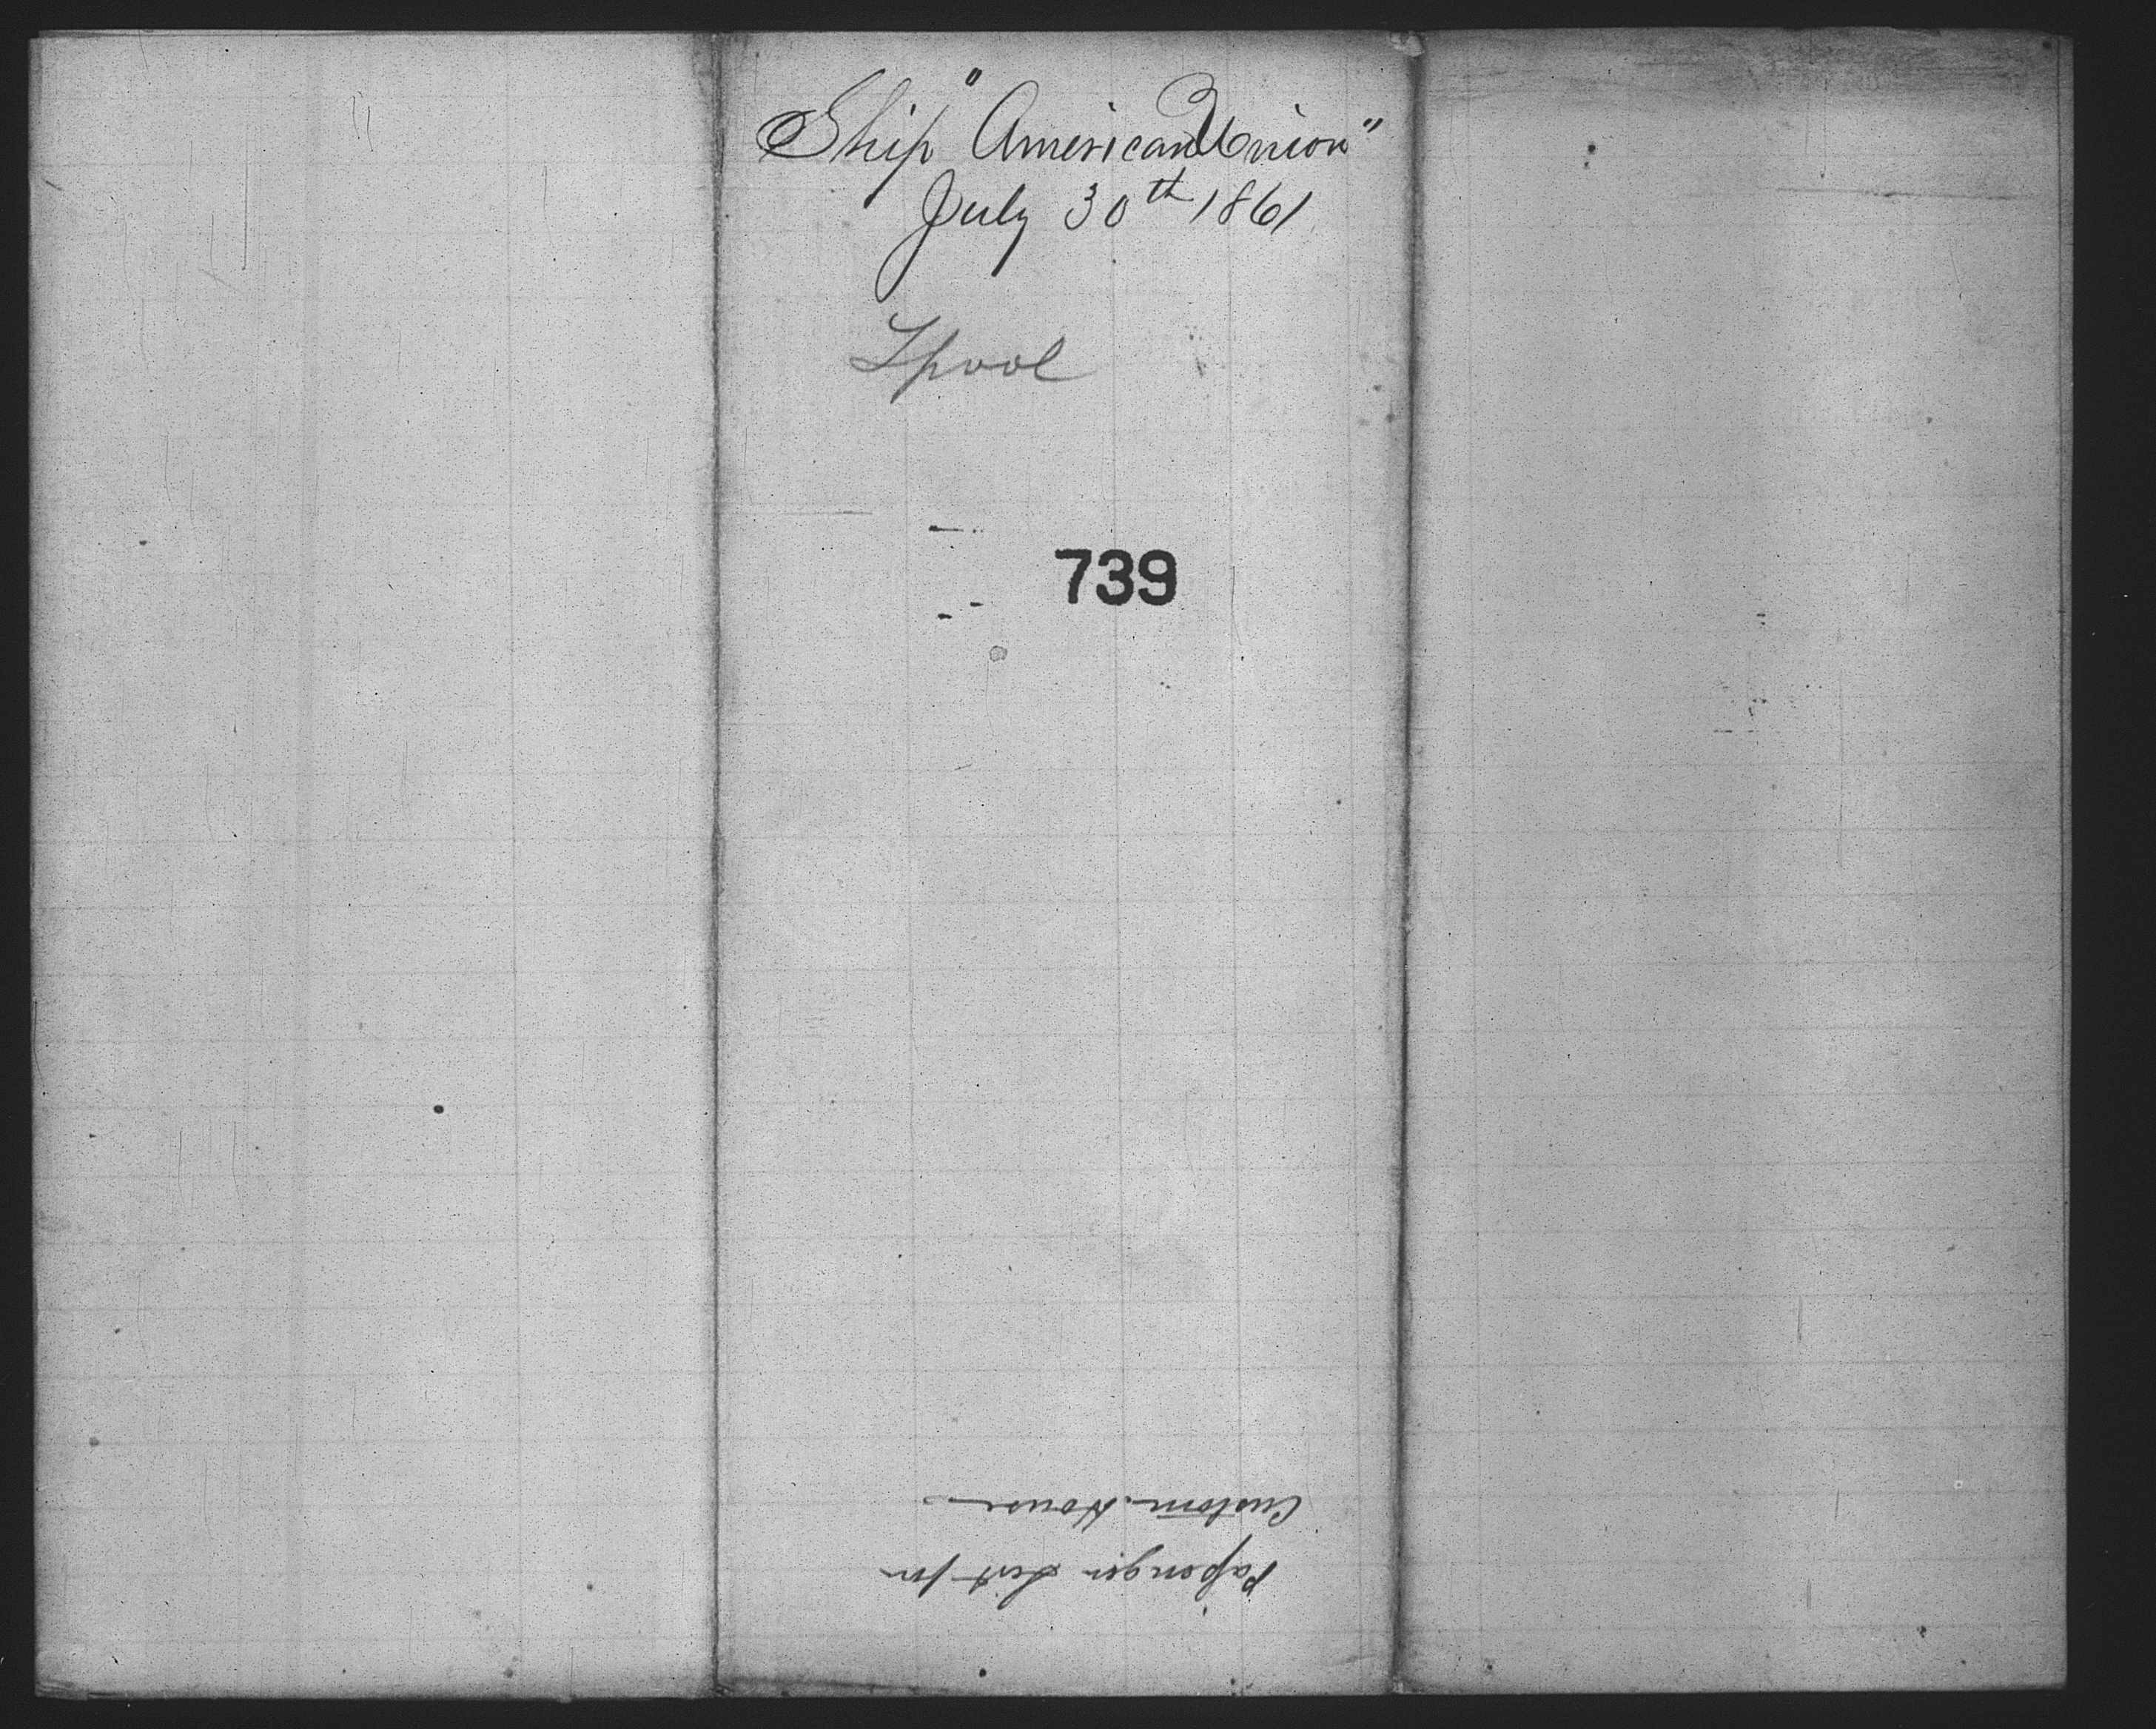 Ship "American Union"
July 30th 1861
Lpool
739
Passenger List for
Custom House